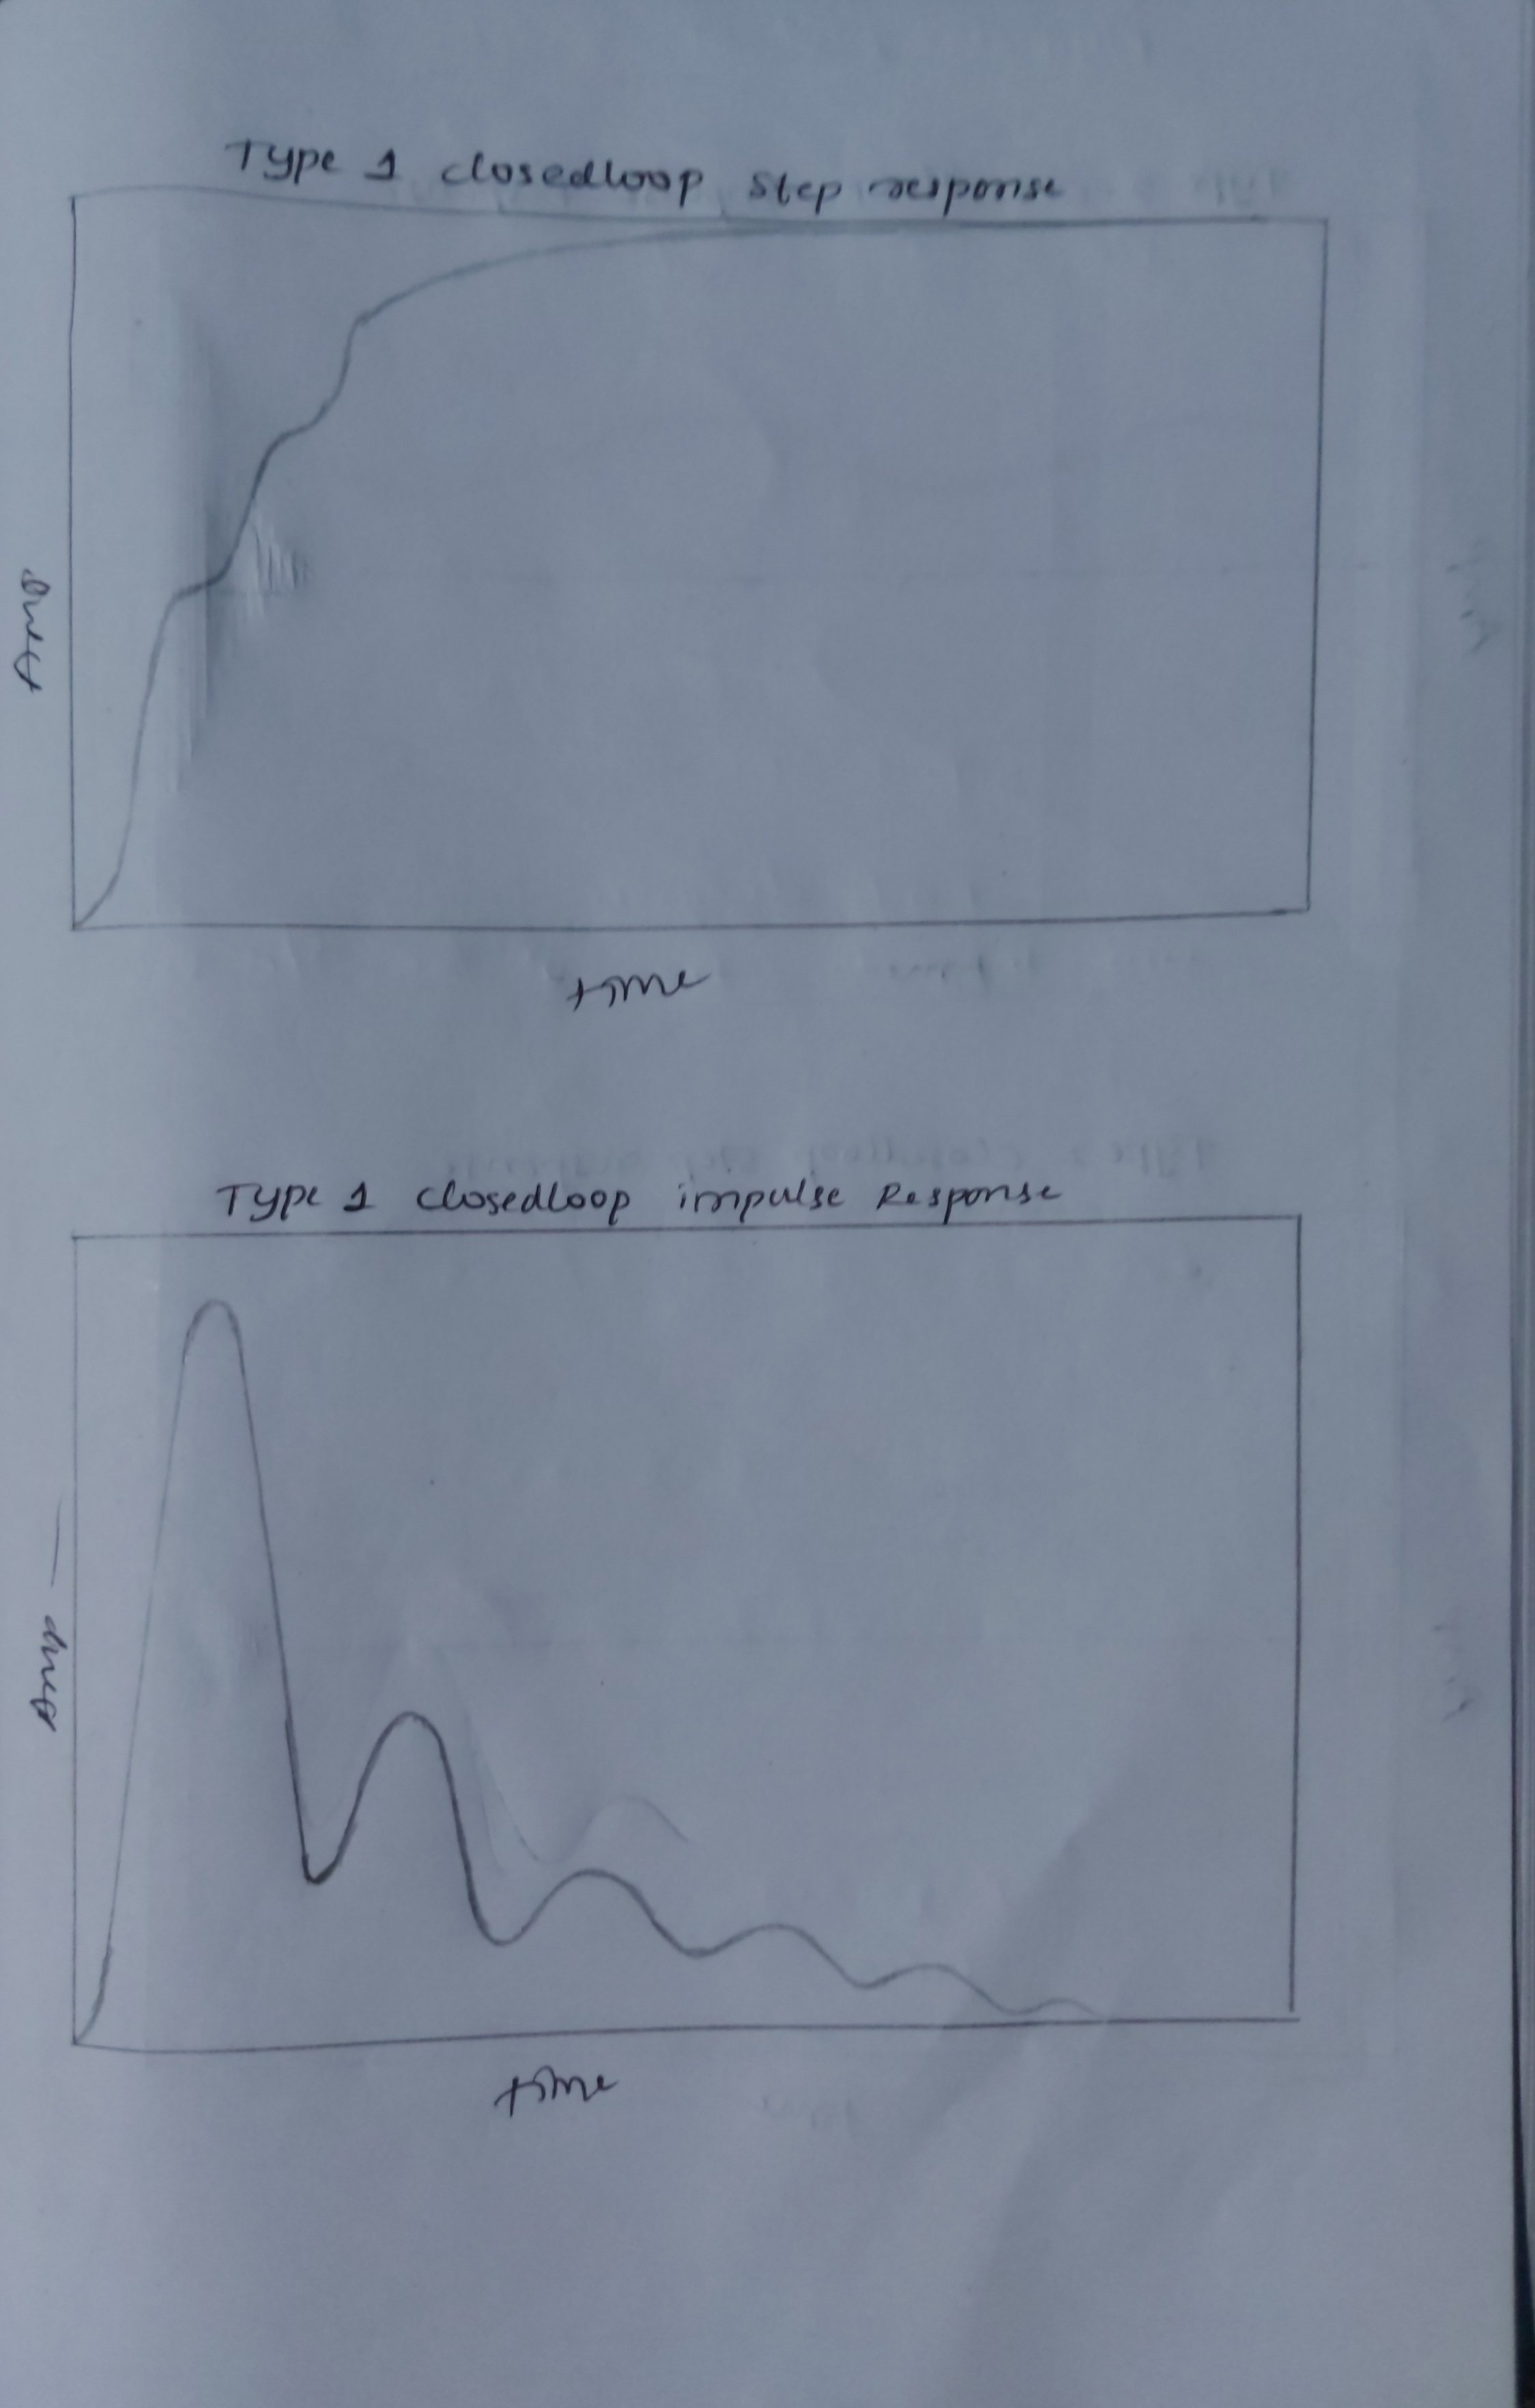 Type 1 closedloop step response
Amp
time
Type 1 closedloop impulse Response
Amp
time